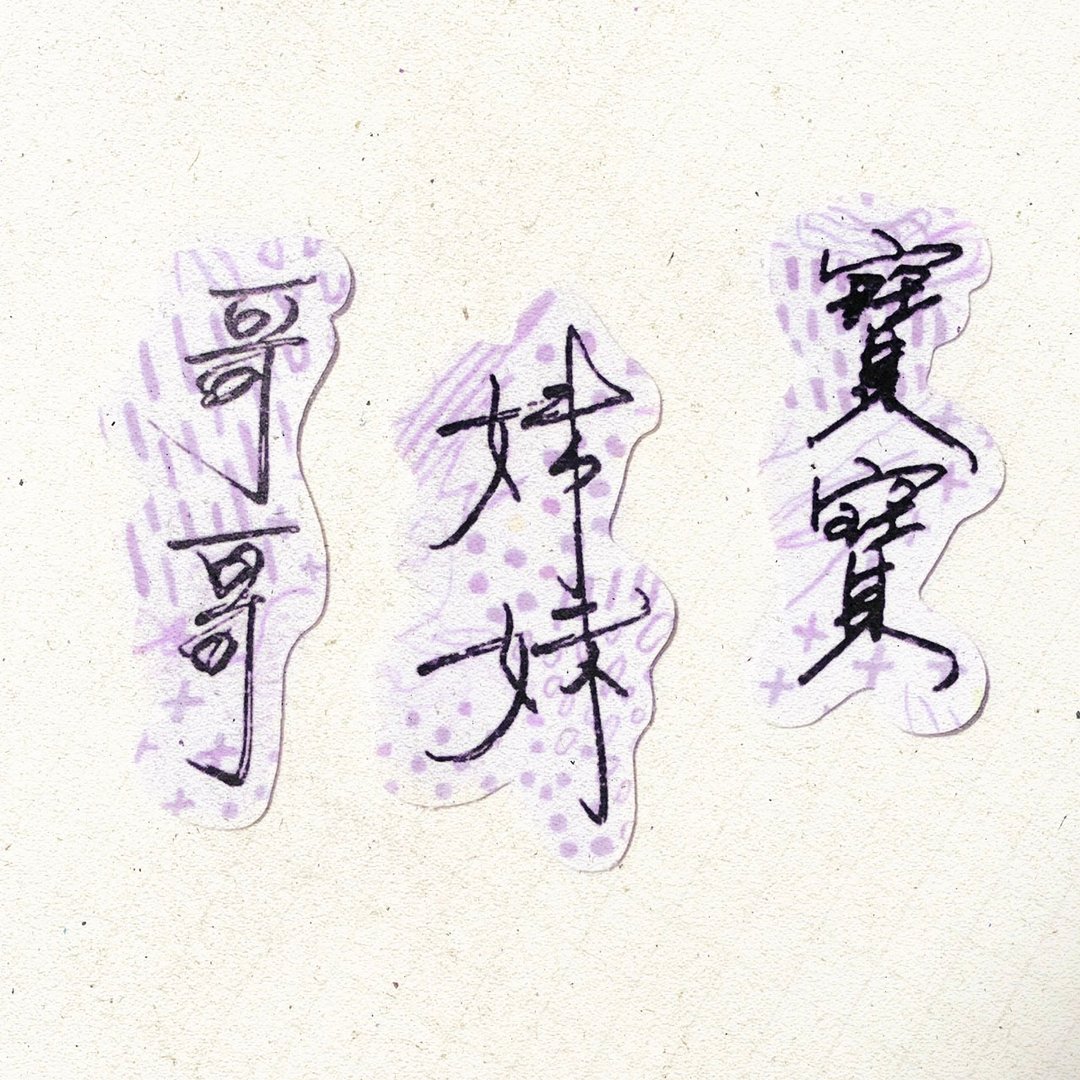 寶寶
妹妹
哥哥